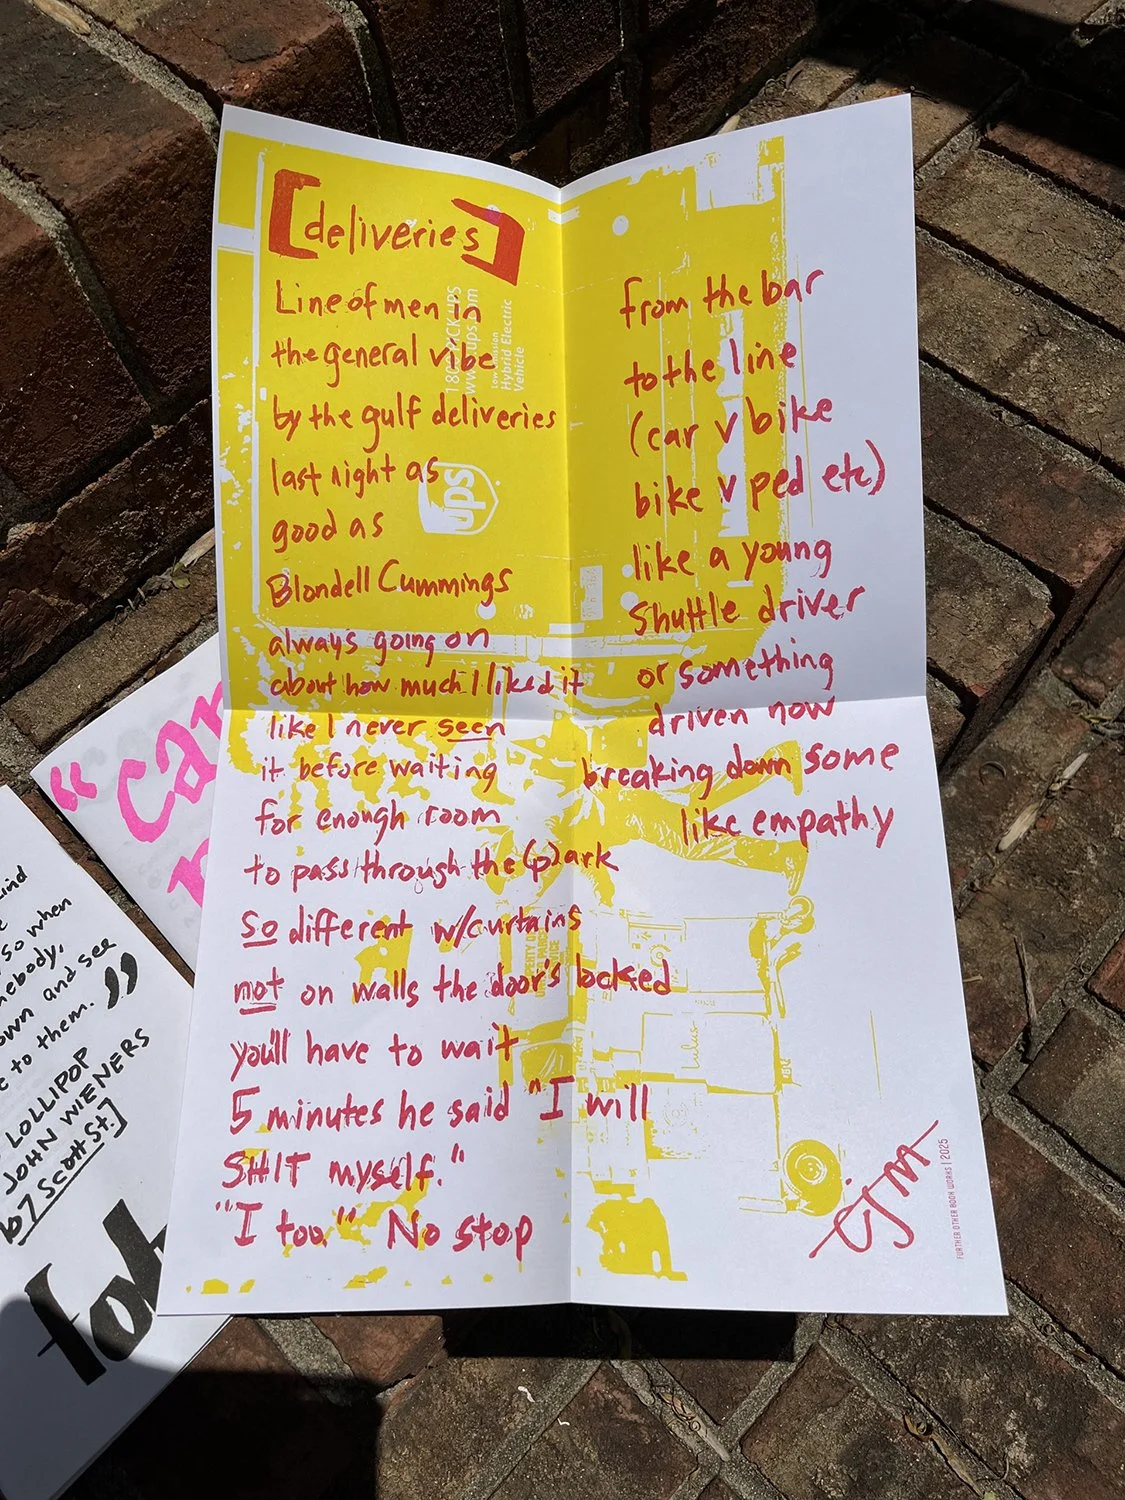 [deliveries]
Line of men in
the general vibe
by the gulf deliveries
last night as
good as
Blondell Cummings
always going on
about how much I liked it
like I never seen
it before waiting
for enough room
to pass through the (p)ark
so different w/curtains
not on walls the door's locked
you'll have to wait
5 minutes he said "I will
SHIT myself."
"I too." No stop
from the bar
to the line
(car v bike
bike v ped etc)
like a young
Shuttle driver
or something
driven now
breaking down some
like empathy
CJM
FURTHER OTHER BOOK WORKS | 2025
www.ups.com
Low Emission
Hybrid Electric
Vehicle
ups
lulus
"car
so when
mebody,
own and see
e to them."
LOLLIPOP
JOHN WIENERS
b7 Scott St.]
tot